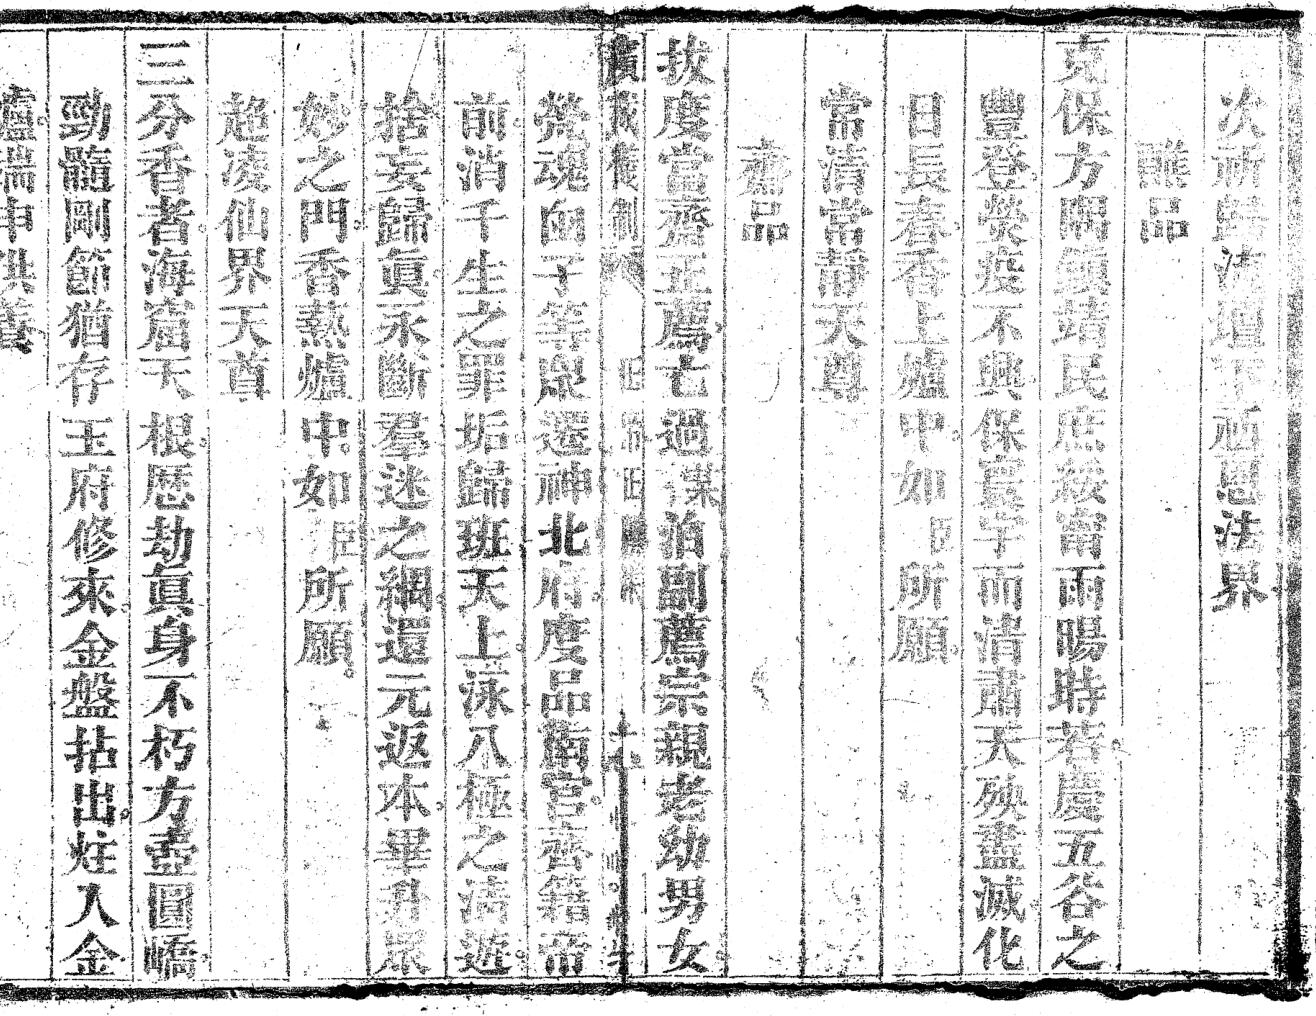 次祈歸法壇下祈恩法界
醮品
克保方隅鎮靖民庶綏甯雨暘時若慶五谷之
豐登災疫不興保寰宇而清肅天殃盡滅化
日長春香上爐中如臣所願
常清常靜天尊
齋品
拔度當齋正薦亡過某洎副薦宗親老幼男女
煢魂血子等眾遷神北府度品南宮齊籍帝
前消千生之罪垢歸班天上泳八極之清遊
捨妄歸眞永斷羣迷之網還元返本畢升眾
妙之門香熱爐中如臣所願
超凌仙界天尊
三分香者海嵩天根歷劫眞身不朽方壺圓嶠
勁髓剛節猶存玉府修來金盤拈出炷入金
爐端申供養